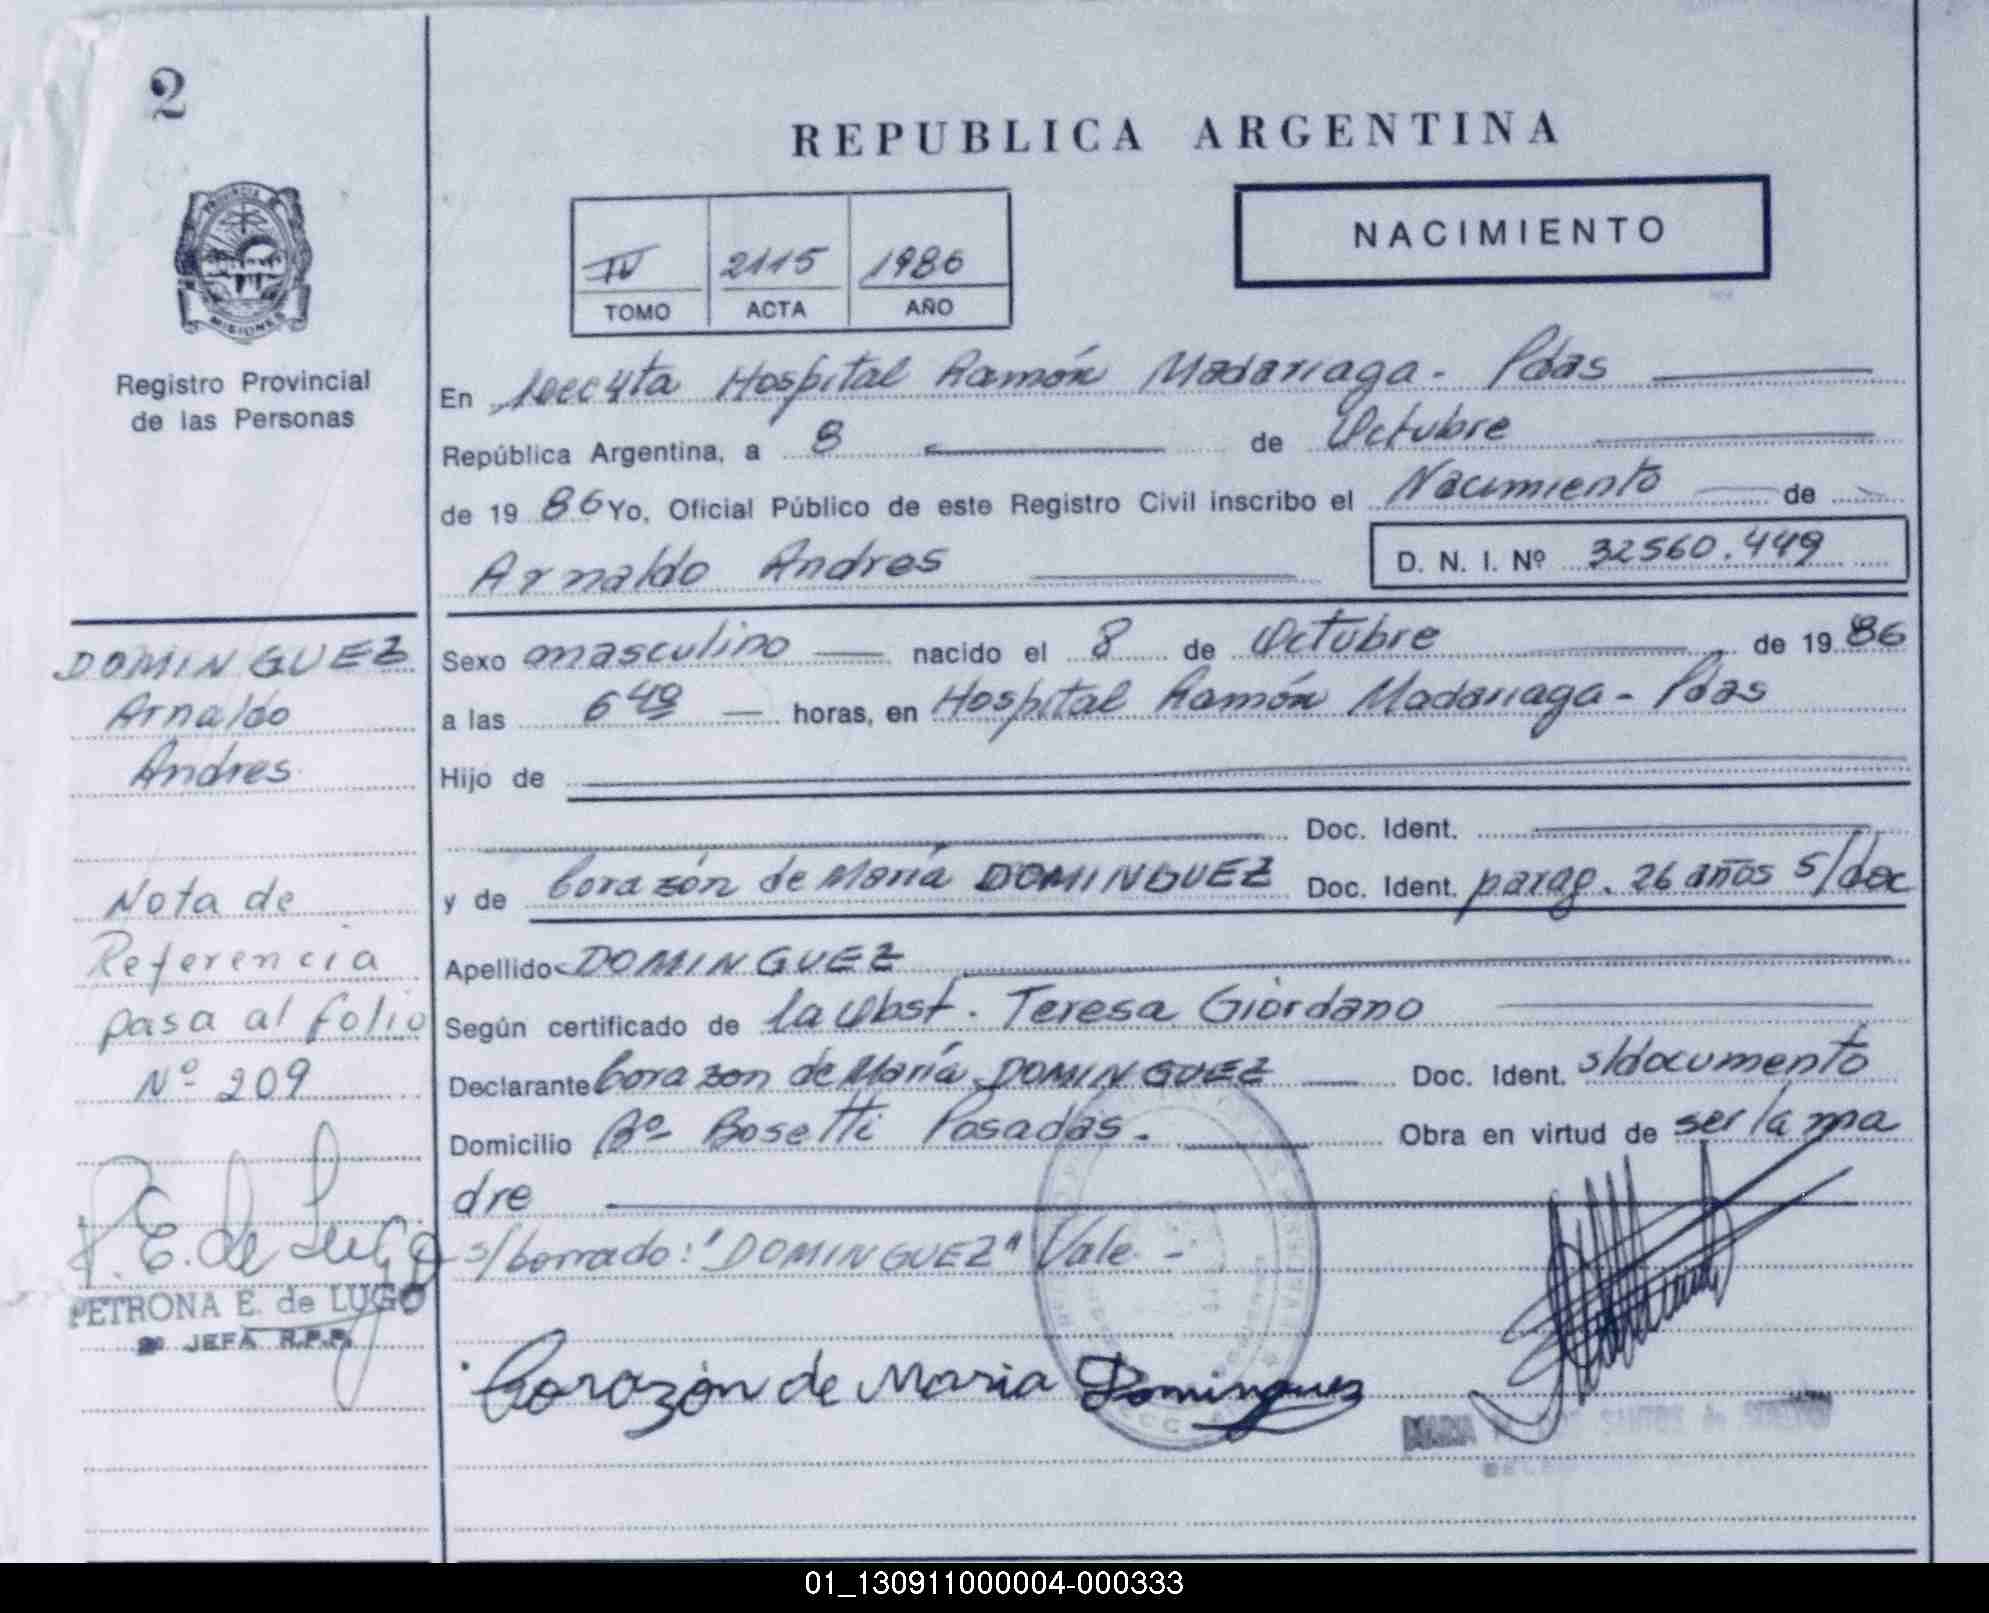 2
REPUBLICA ARGENTINA
NACIMIENTO
IV 2115 1986
TOMO ACTA AÑO
PROVINCIA DE
MISIONES
Registro Provincial
de las Personas
En Secc 4ta Hospital Ramón Madariaga - Pdas
República Argentina, a 8 de Octubre
de 1986 Yo, Oficial Público de este Registro Civil inscribo el Nacimiento de
Arnaldo Andres D. N. I. Nº 32560.449
DOMINGUEZ
Arnaldo
Andres
Sexo masculino nacido el 8 de Octubre de 1986
a las 6 40 horas, en Hospital Ramón Madariaga - Pdas
Hijo de
Doc. Ident.
y de Corazón de María DOMINGUEZ Doc. Ident. parag. 26 años s/doc
Apellido DOMINGUEZ
Según certificado de la Obst. Teresa Giordano
Declarante Corazon de María DOMINGUEZ Doc. Ident. s/documento
Domicilio Bº Bosetti Posadas. Obra en virtud de ser la ma
dre
s/borrado: "DOMINGUEZ" Vale -
Nota de
Referencia
pasa al folio
Nº 209
P. E. de Lugo
PETRONA E. de LUGO
JEFA R.P.P.
Corazón de Maria Dominguez
MARIA SANTOS de
01_130911000004-000333